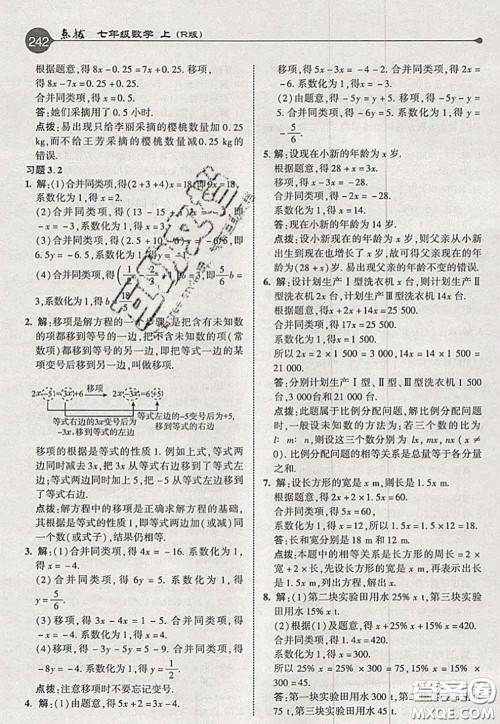 242 点拨 七年级数学 上 (R版)
根据题意,得 8x-0.25=7x+0.25. 移项,
得 8x-7x=0.25+0.25.
合并同类项,得 x=0.5.
答:她们采摘了 0.5 小时.
点拨:易出现只给李丽采摘的樱桃数量加 0.25
kg,而不给王芳采摘的樱桃数量减 0.25 kg 的
错误.
习题 3.2
1. 解:(1)合并同类项,得(2+3+4)x=18,9x=18,
系数化为 1,得 x=2.
(2)合并同类项,得(13-15
x=-3,系数化为 1,得 x=3.
(3)合并同类项,得(2.5+10
6.5y=-6.5,系数化为 1,得 y=-1.
(4)合并同类项,得
=3,系数化为 1,得 b=
2. 解:移项是解方程的
的项移到等式的一边,把不含未知数的项(常
数项)都移到等式的另一边,即把等式一边的某
项变号后移到另一边,叫做移项.
移项
等式右边的3x变号后为 等式左边的-5变号后为+5,
-3x,移到等式的左边 移到等式的右边
移项的根据是等式的性质 1. 例如上式,等式两
边同时减去 3x,把 3x 变号后移到了等式的左
边;等式两边同时加上 5,把-5 变号后移到了
等式的右边.
点拨:解方程中的移项是正确求解方程的基础,
其根据是等式的两边加(或减)同一个数(或
式子),结果仍相等.
3. 解:(1)合并同类项,得 4x=-16. 系数化为 1,
得 x=-4.
(2)合并同类项,得 6y=5. 系数化为 1,得 y=
5/6.
(3)移项,得 3x-4x=1-5. 合并同类项,得
-x=-4. 系数化为 1,得 x=4.
(4)移项,得-3y-5y=5-9. 合并同类项,得
-8y=-4. 系数化为 1,得 y=1/2.
点拨:注意移项时不要忘记变号.
4. 解:(1)根据题意,得 5x+2=3x-4. 移项,得
5x-3x=-4-2. 合并同类项,得 2x=
-6. 系数化为 1,得 x=-3.
(2)由题意,得-5y=y+5. 移项,得-5y-y=
5. 合并同类项,得-6y=5. 系数化为 1,得 y=
-5/6.
5. 解:设现在小新的年龄为 x 岁.
根据题意,得 28+x=3x.
移项,得 28=2x.
系数化为 1,得 x=14.
答:现在小新的年龄为 14 岁.
点拨:设小新现在的年龄为 x 岁,则父亲从小新
出生到现在,年龄也增加了 x 岁,所以父亲现在
的年龄是(28+x)岁. 易出现忽视父亲年龄也
在增长而列错方程的错误.
6. 解:设计划生产Ⅰ型洗衣机 x 台,则计划生产Ⅱ
型洗衣机 2x 台,计划生产Ⅲ型洗衣机 14x 台.
根据题意,得 x+2x+14x=25 500.
合并同类项,得 17x=25 500.
系数化为 1,得 x=1 500.
所以 2x=2×1 500=3 000,14x=14×1 500=
21 000.
答:分别计划生产Ⅰ型、Ⅱ型、Ⅲ型洗衣机 1 500 台,
3 000 台和 21 000 台.
点拨:此题属于比例分配问题,解比例分配问题
时,一般设其中一份为 x. 若三个数之比为
l:m:n,则设这三个数分别为 lx,mx,nx(x≠
0). 比例分配问题的相等关系是总量等于各分
量之和.
7. 解:设长方形的宽是 x m,则长是 1.5x m.
根据题意,得 2x+2×1.5x=60.
合并同类项,得 5x=60.
系数化为 1,得 x=12.
所以 1.5x=1.5×12=18.
答:长方形的长是 18 m,宽是 12 m.
点拨:本题中的相等关系是长方形的周长=2×
宽+2×长,根据长与宽的关系,设出未知数,将
相关的量代入相等关系,即可得到方程.
8. 解:(1)第二块实验田用水 25% x t,第三块实
验田用水 15% x t.
(2)根据(1)及题意,得 x+25% x+15% x=
420.
合并同类项,得 1.4x=420.
系数化为 1,得 x=300.
所以 25% x=25%×300=75,15% x=15%×
300=45.
答:第一块实验田用水
答案圈
MXQE.COM